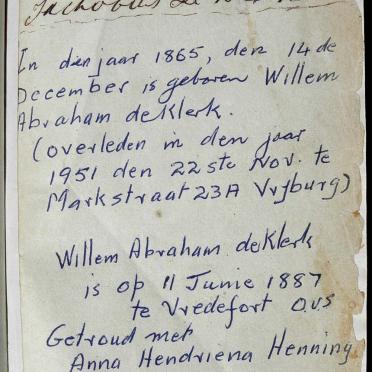 Jachobus de
In den jaar 1865, den 14 de
December is geboren Willem
Abraham deKlerk.
(overleden in den jaar
1951 den 22 ste Nov. te
Markstraat 23A Vrijburg)
Willem Abraham deKlerk
is op 11 Junie 1887
te Vredefort O.V.S
Getroud met
Anna Hendriena Henning